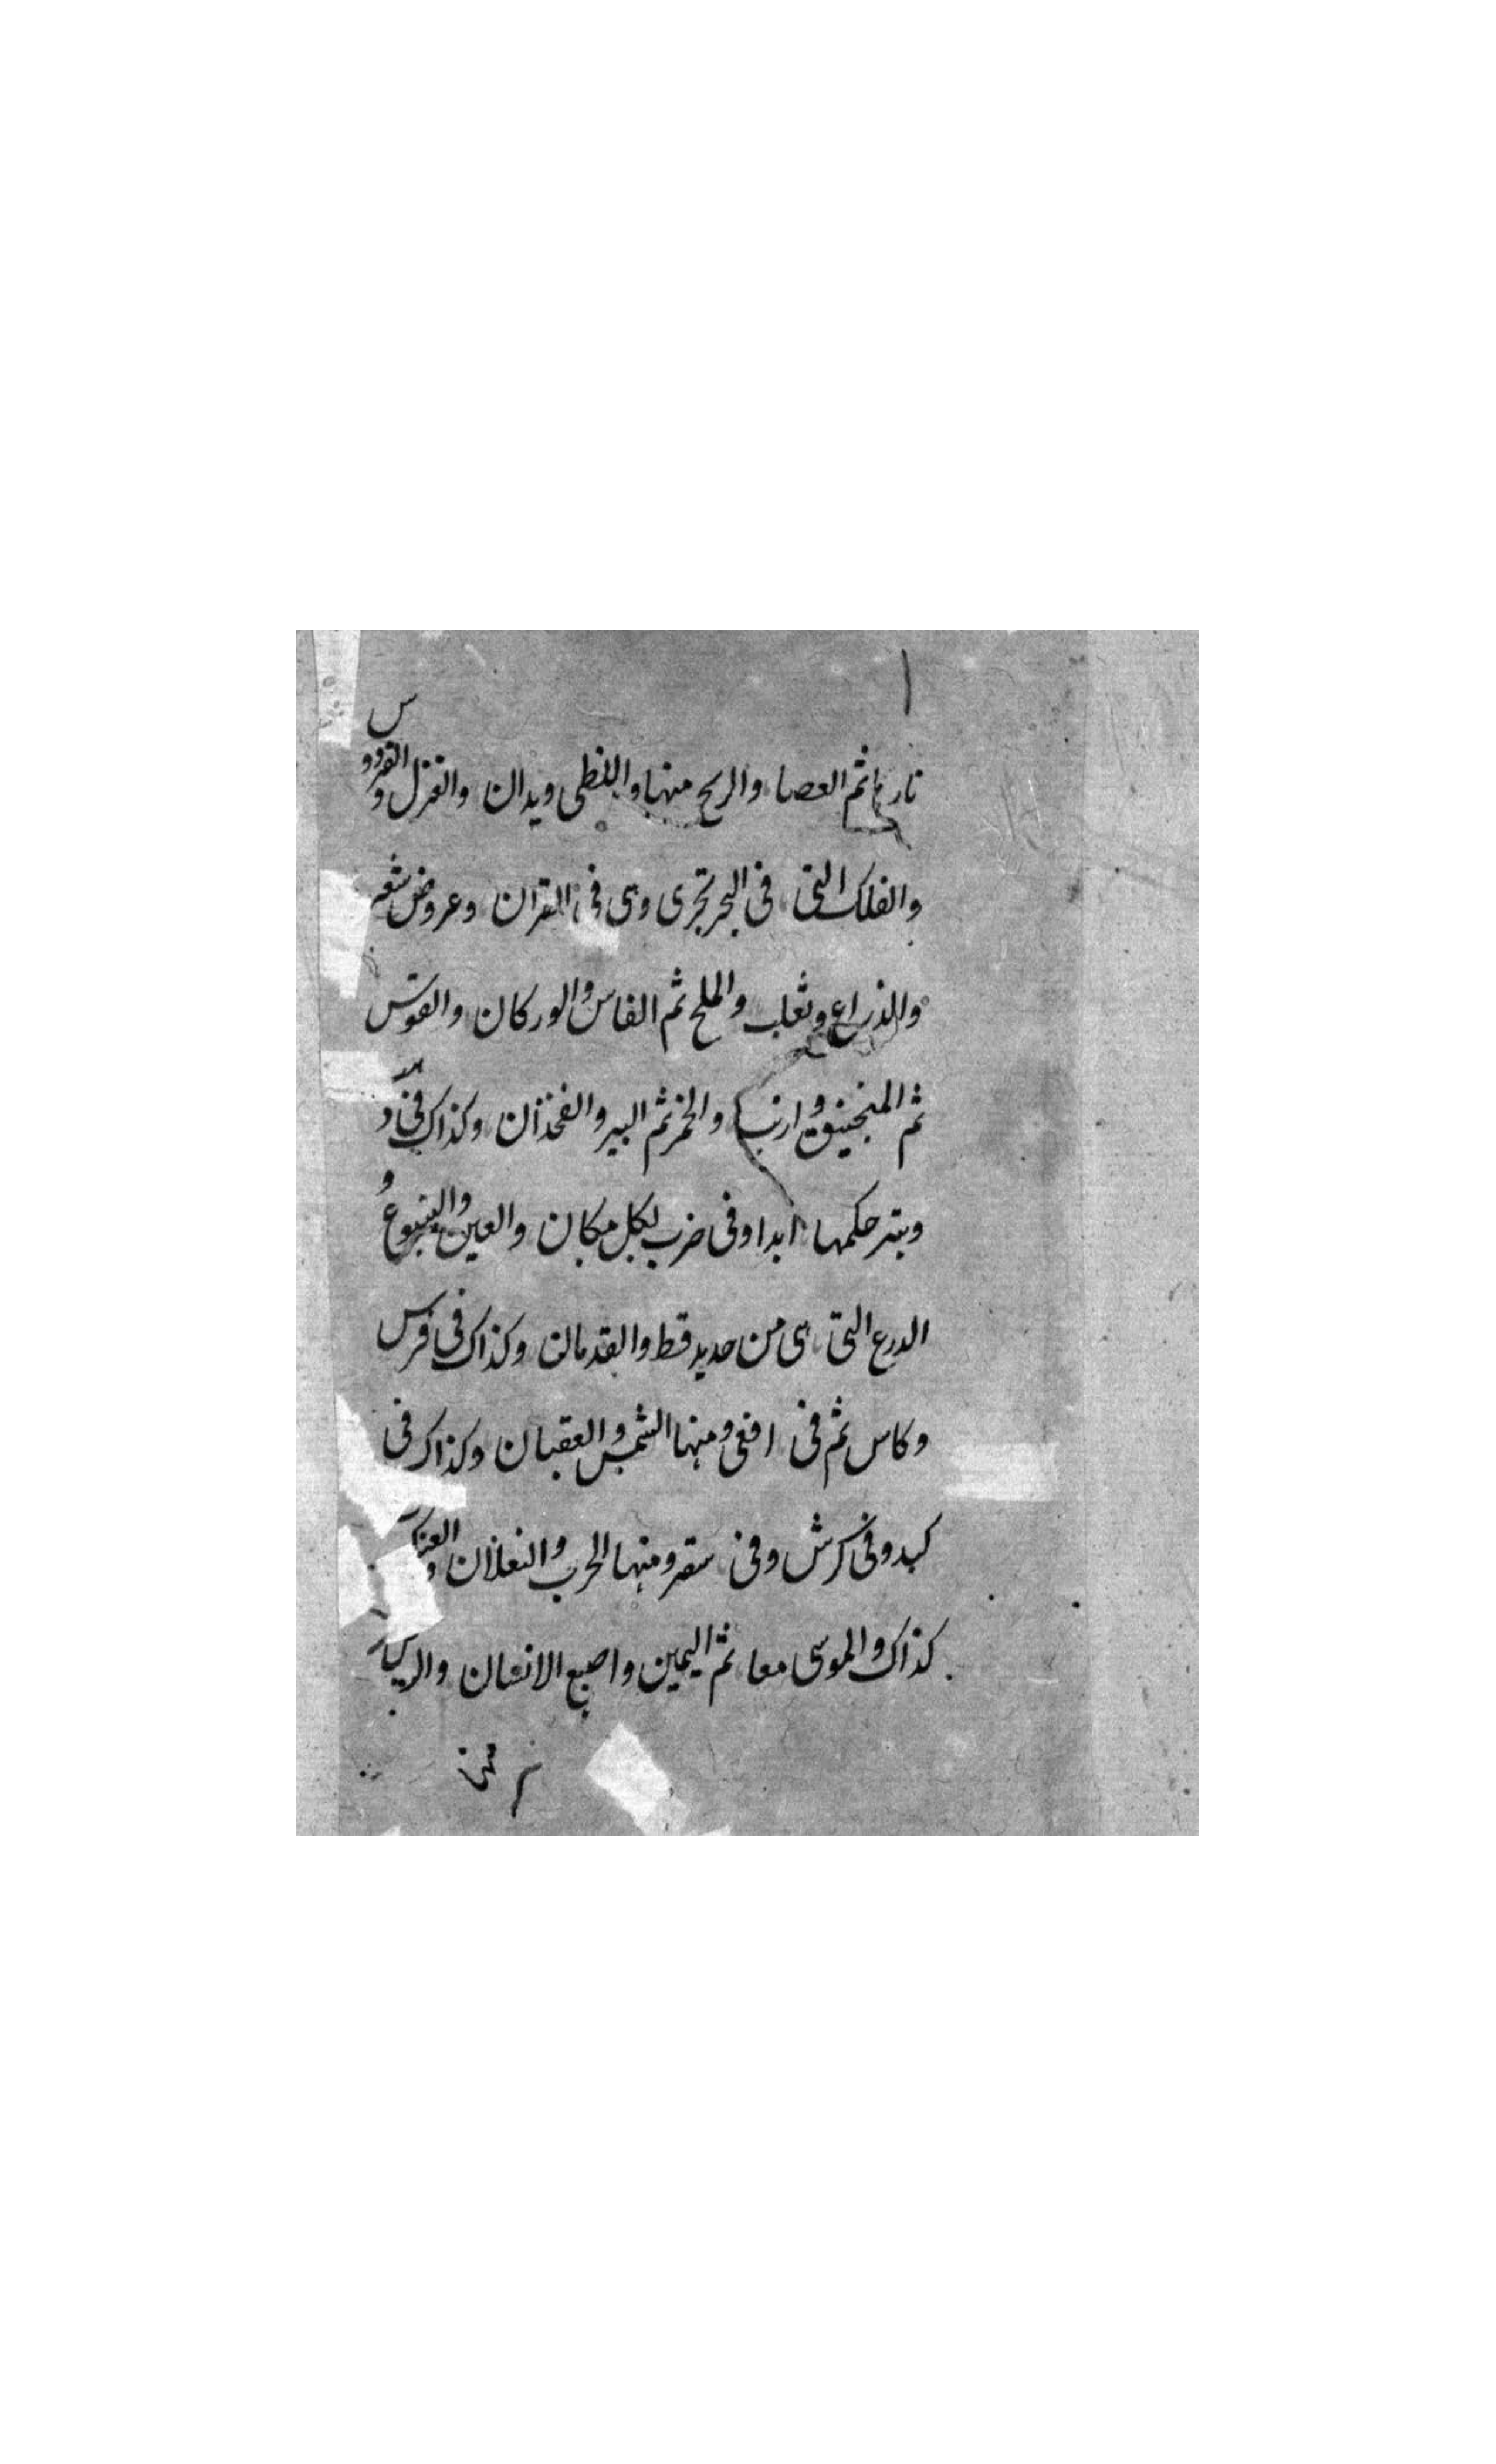 نار ثم العصا والريح منها واللظى ويدان والغزل والفردوس
والفلك التى فى البحر تجرى وهى فى القران وعروض شعر
والذراع وثعلب والملح ثم الفاس والوركان والقوس
ثم المنجنيق وارنب والخمر ثم البير والفخذان وكذاك فى
وبتر حكمها ابدا وفى ضرب لكل مكان والعين والينبوع و
الدرع التى هى من حديد قط والقدمان وكذاك فى فرس
وكاس ثم فى افعى ومنها الشمس والعقبان وكذاك فى
كبد وفى كرش وفى سقر ومنها الحرب والنعلان و
كذاك والموسى معا ثم اليمين واصبع الانسان والريس
منها